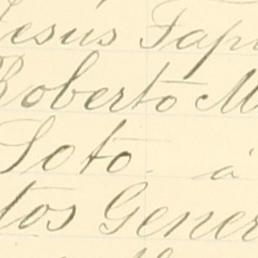 Jesús Tapi
Roberto M
Soto. á
tos Gener